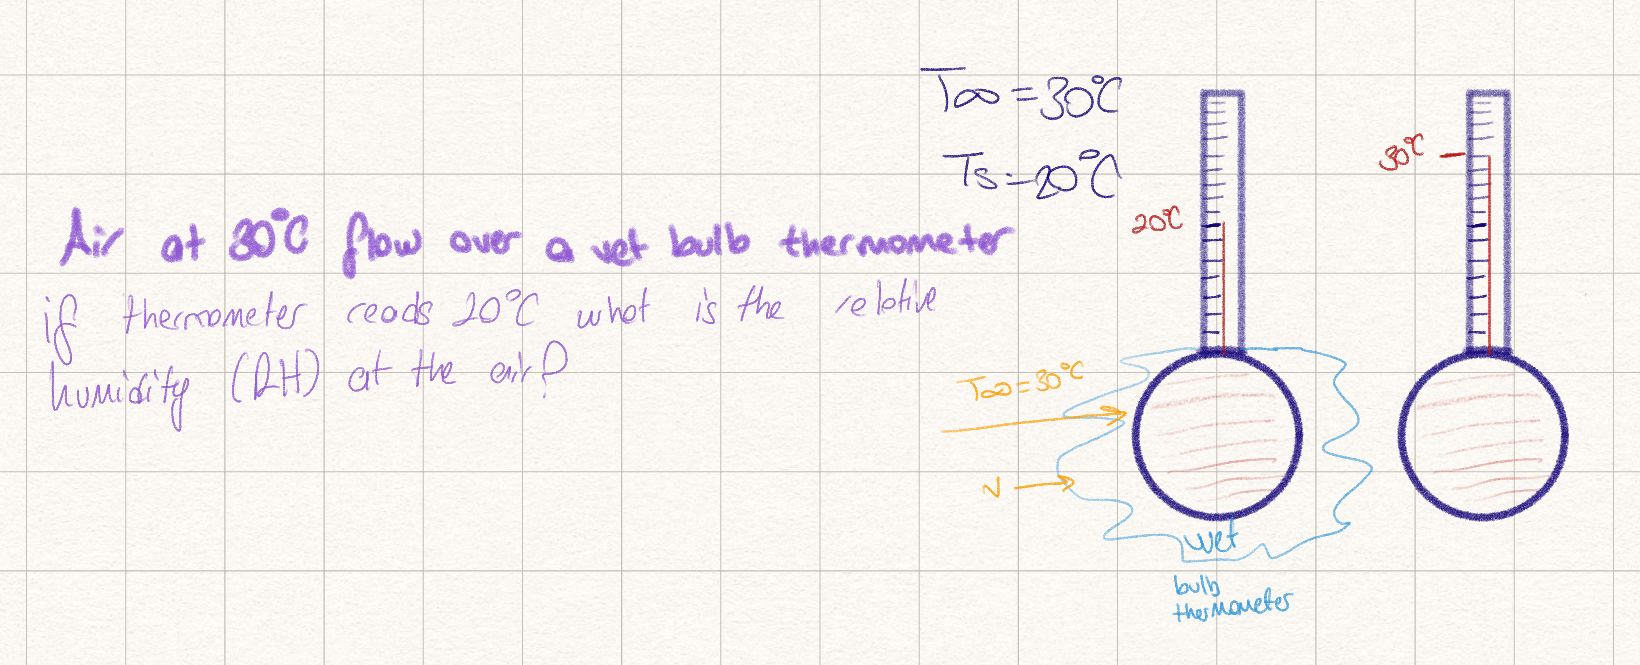 Air at 30°C flow over a wet bulb thermometer
if thermometer reads 20°C what is the relative
humidity (RH) at the air?
T∞ = 30°C
Ts = 20°C
20°C
30°C
T∞ = 30°C
V
wet
bulb
thermometer